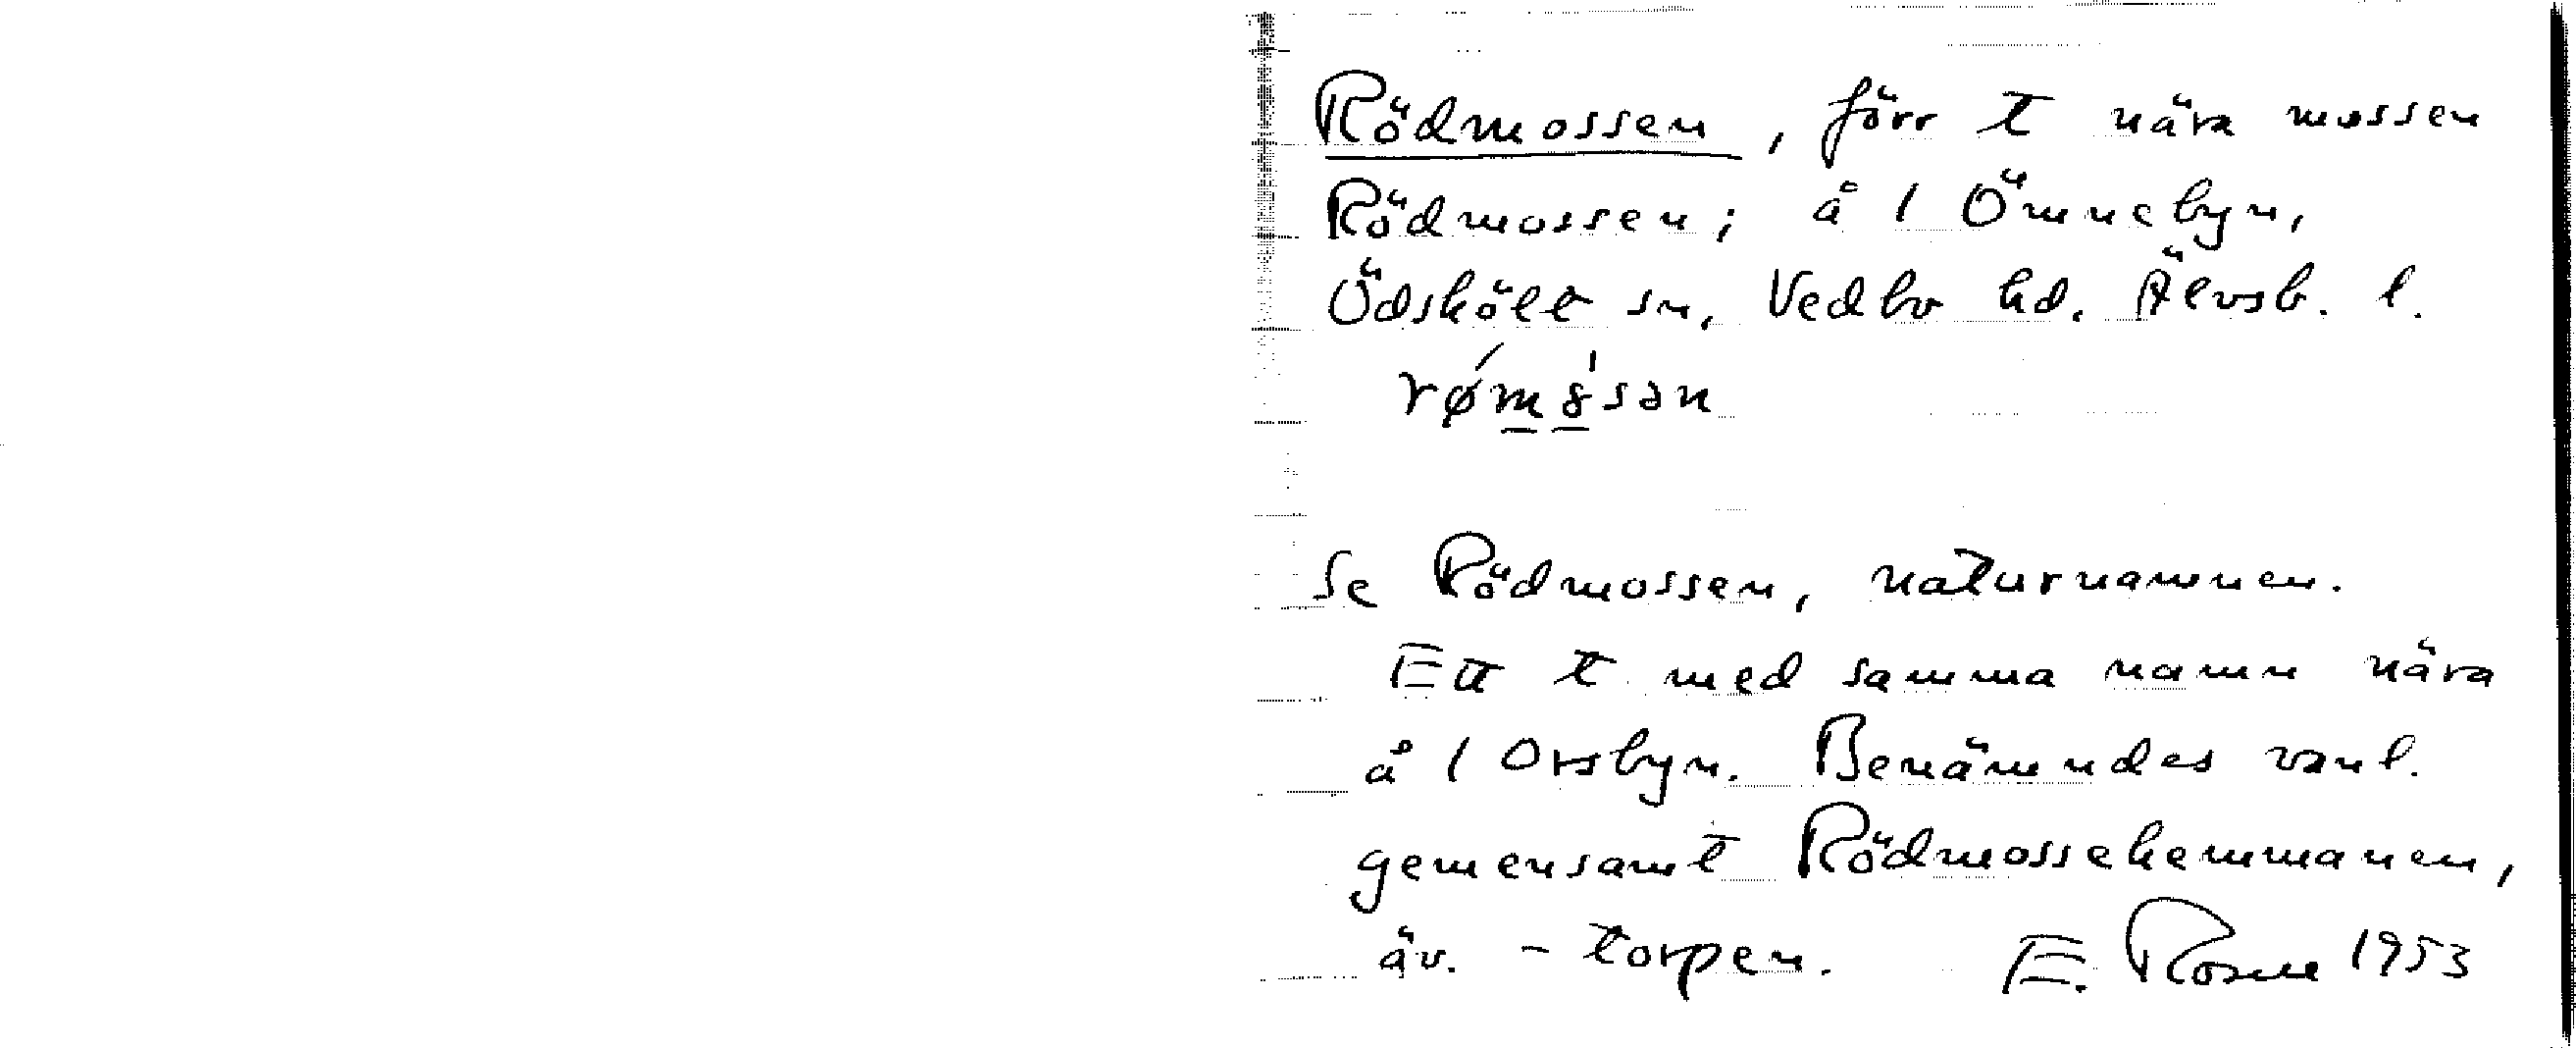 Rödmossen, förr t nära mossen
Rödmossen; å 1 Ömnebyn,
Ödskölt sn, Vedbo hd. Älvsb. l.
Se Rödmossen, naturnamnen.
Ett t med samma namn nära
å 1 Orsbyn. Benämndes vanl.
gemensamt Rödmossehemmanen,
äv. - torpen. E. Rosm 1953